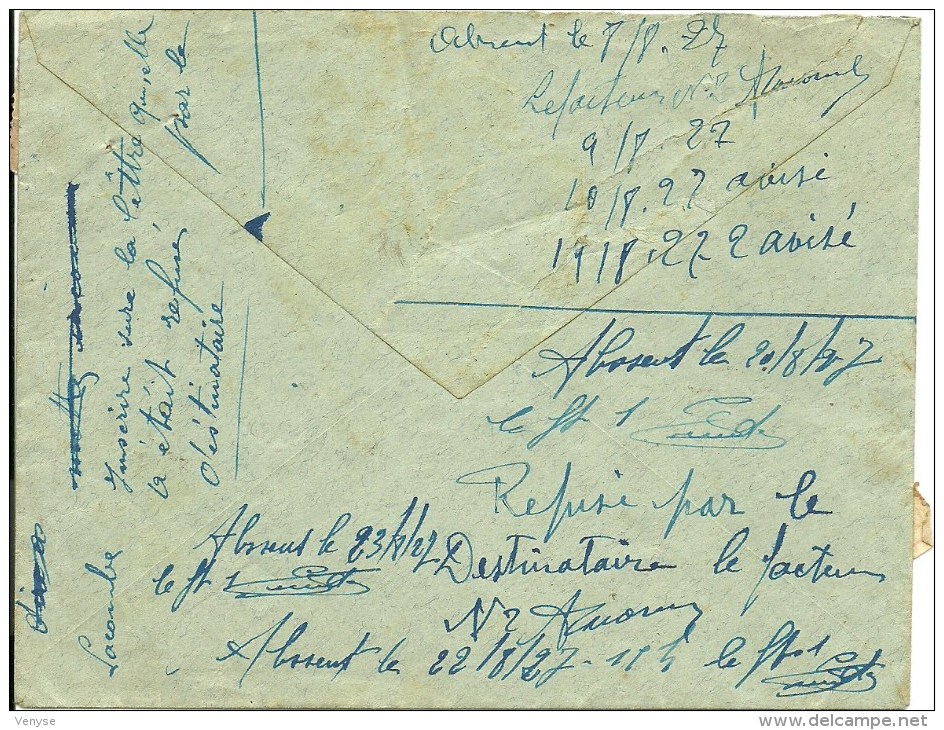 Absent le 7/8.27
Le facteur N°2
9/8.27
10/8.27 avisé
11/8.27 2 avisé
Absent le 20/8/27
le ft 1
Refusé par le
Destinataire le facteur
N°2
Absent le 23/8/27
le ft 1
Absent le 22/8/27 - 11h le ft 1
Inscrire sure la lêttre qu'elle
a était refusé par le
Déstinataire
Lacombe
Venyse
delcampe.net